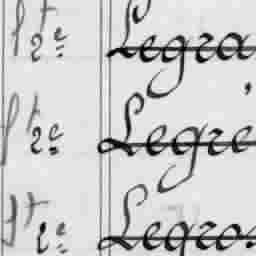 st 2e Legra
st 2e Legre
st 2e Legros